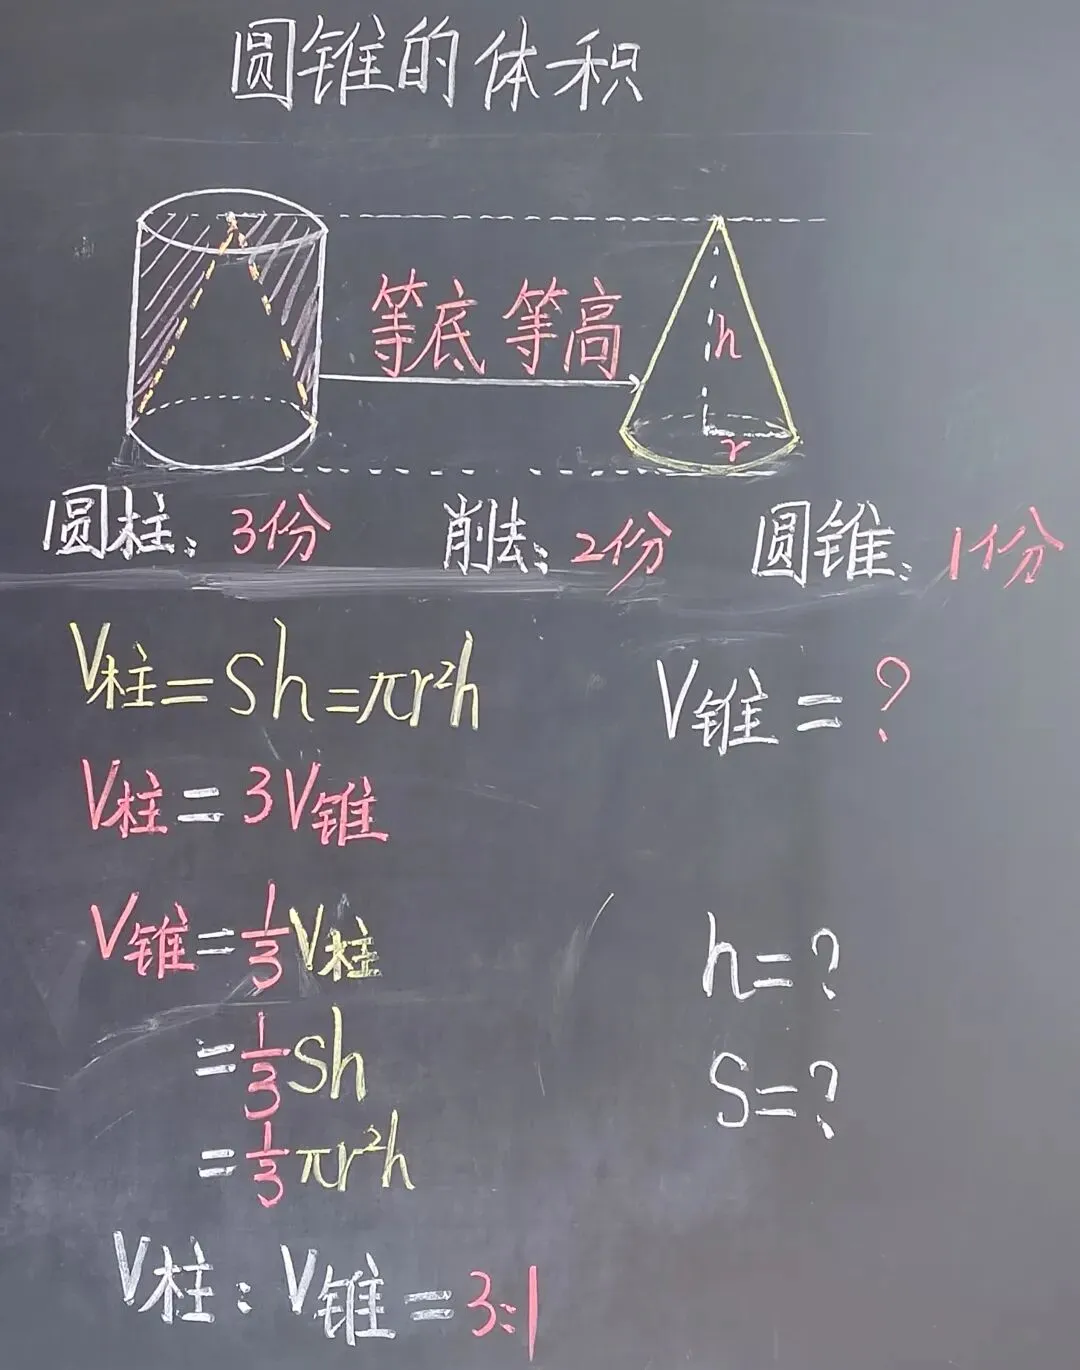 圆锥的体积
等底 等高
h
r
圆柱：3份 削去：2份 圆锥：1份
V柱=Sh=πr²h
V锥=？
V柱=3V锥
V锥=1/3V柱
h=？
=1/3Sh
S=？
=1/3πr²h
V柱：V锥=3:1